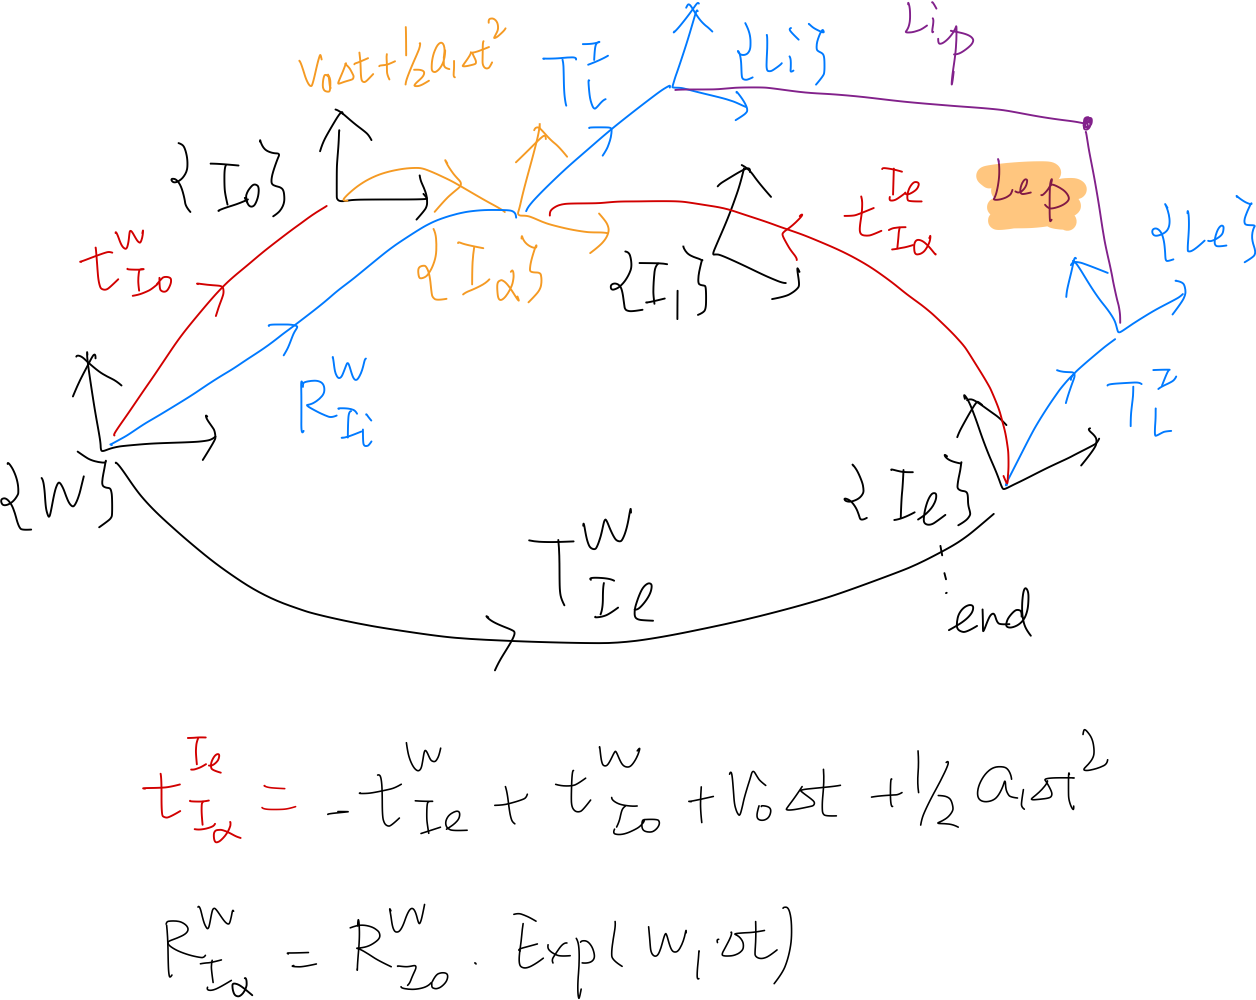 V₀Δt+½a₁Δt²
T_L^I
{Li}
Li_p
{I₀}
t_{I₀}^W
{I_α}
{I₁}
t_{Iα}^{Ie}
Le_p
{Le}
R_{Ii}^W
T_L^I
{W}
{Ie}
T_{Ie}^W
end
t_{Iα}^{Ie} = -t_{Ie}^W + t_{I₀}^W + V₀Δt + ½a₁Δt²
R_{Iα}^W = R_{I₀}^W · Exp(W₁·Δt)